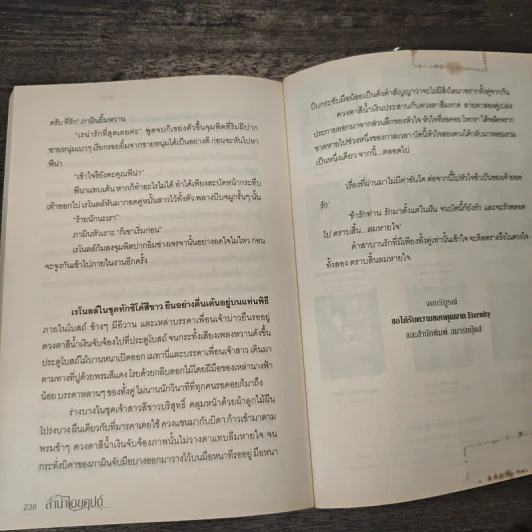 ครับ ที่รัก" ภามินยิ้มหวาน
"เรน่ารักที่สุดเลยค่ะ" พูดจบก็เขย่งตัวขึ้นจุมพิตที่ริมฝีปาก
ชายหนุ่มเบาๆ เรียกรอยยิ้มจากชายหนุ่มได้เป็นอย่างดี ก่อนจะหันไปหา
พีน่า
"เข้าใจรึยังคะคุณพีน่า"
พีน่าแทบเต้น หากก็ทำอะไรไม่ได้ ทำได้เพียงสะบัดหน้ากระทืบ
เท้าออกไป เรโนลล์หันมากอดคู่หมั้นสาวไว้ทั้งตัว พลางบีบจมูกรั้นๆ นั้น
"ร้ายนักนะเรา"
ภามินหัวเราะ "ก็เขาเงินก่อน"
เรโนลล์ก้มลงจุมพิตปากอิ่มช่างเจรจานั้นอย่างอดใจไม่ไหว ก่อน
จะจูงกันเข้าไปภายในงานอีกครั้ง
เรโนลล์ในชุดทักซิโด้สีขาว ยืนอย่างตื่นเต้นอยู่บนแท่นพิธี
ภายในโบสถ์ ข้างๆ มีอีวาน และเหล่าบรรดาเพื่อนเจ้าบ่าวยืนรออยู่
ดวงตาสีน้ำเงินจับจ้องไปที่ประตูโบสถ์ จนกระทั่งเสียงเพลงหวานดังขึ้น
ประตูโบสถ์ไม้บานหนาเปิดออก เมทานี่และบรรดาเพื่อนเจ้าสาว เดินมา
ตามทางที่ปูด้วยพรมสีแดง โรยด้วยกลีบดอกไม้โดยฝีมือของเหล่านางฟ้า
น้อย บรรดาหลานๆ ของทั้งคู่ ไม่นานนักวินาทีที่ทุกคนรอคอยก็มาถึง
ร่างบางในชุดเจ้าสาวสีขาวบริสุทธิ์ คลุมหน้าด้วยผ้าลูกไม้ผืน
โปร่งบาง ผืนเดียวกับที่มารดาเคยใช้ ควงแขนมากับบิดา ก้าวเข้ามาตาม
พรมช้าๆ ดวงตาสีน้ำเงินจับจ้องภาพนั้นไม่วางตาแทบลืมหายใจ จน
กระทั่งบิดาของภามินจับมือบางออกมาวางไว้บนมือหนาที่รออยู่ มือหนา
238 ลำนำไอยคุปต์
บีบกระชับมือน้อยเป็นดั่งคำสัญญาว่าจะไม่มีสิ่งใดมาพรากทั้งคู่จากกัน
ดวงตาสีน้ำเงินประสานกับดวงตาสีมรกต สายตาสองคู่เปล่ง
ประกายออกมาจากส่วนลึกของหัวใจ หัวใจที่รอคอย โหยหา ได้พลัดพราก
ขาดหายไปช่วงหนึ่งของกาลเวลา บัดนี้หัวใจสองดวงได้กลับมาหลอมรวม
เป็นหนึ่งเดียว จากนี้...ตลอดไป
เรื่องที่ผ่านมาไม่มีค่าอันใด ต่อจากนี้ไปหัวใจข้าเป็นของเจ้ายอด
รัก'
'ข้ารักท่าน รักมาตั้งแต่ในฝัน จนบัดนี้ก็ยังรัก และจะรักตลอด
ไป ตราบสิ้น...ลมหายใจ'
คำสาบานรักที่มีเพียงทั้งคู่เท่านั้นเข้าใจ จะติดตราตรึงในดวงใจ
ทั้งสอง ตราบสิ้นลมหายใจ
จบบริบูรณ์
ขอได้รับความขอบคุณจาก Eternity
และสำนักพิมพ์ สมาร์ทบุ๊คส์